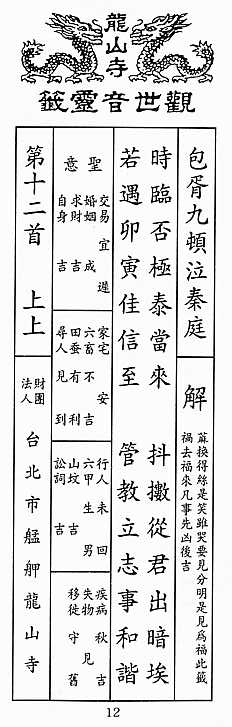 龍山寺
觀世音靈籤
包胥九頓泣秦庭
解
蔴換得絲是笑雖哭要見分明是見為福此籤
福去福來凡事先凶後吉
時臨否極泰當來 抖擻從君出暗埃
若遇卯寅佳信至 管教立志事和諧
聖意
交易宜遲
婚姻成
求財吉
自身吉
家宅安
六畜不吉
田蠶有利
尋人見到
行人未回
六甲生男
山坟吉
訟詞吉
疾病秋吉
失物見
移徙守舊
第十二首 上上
財團
法人
台北市艋舺龍山寺
12